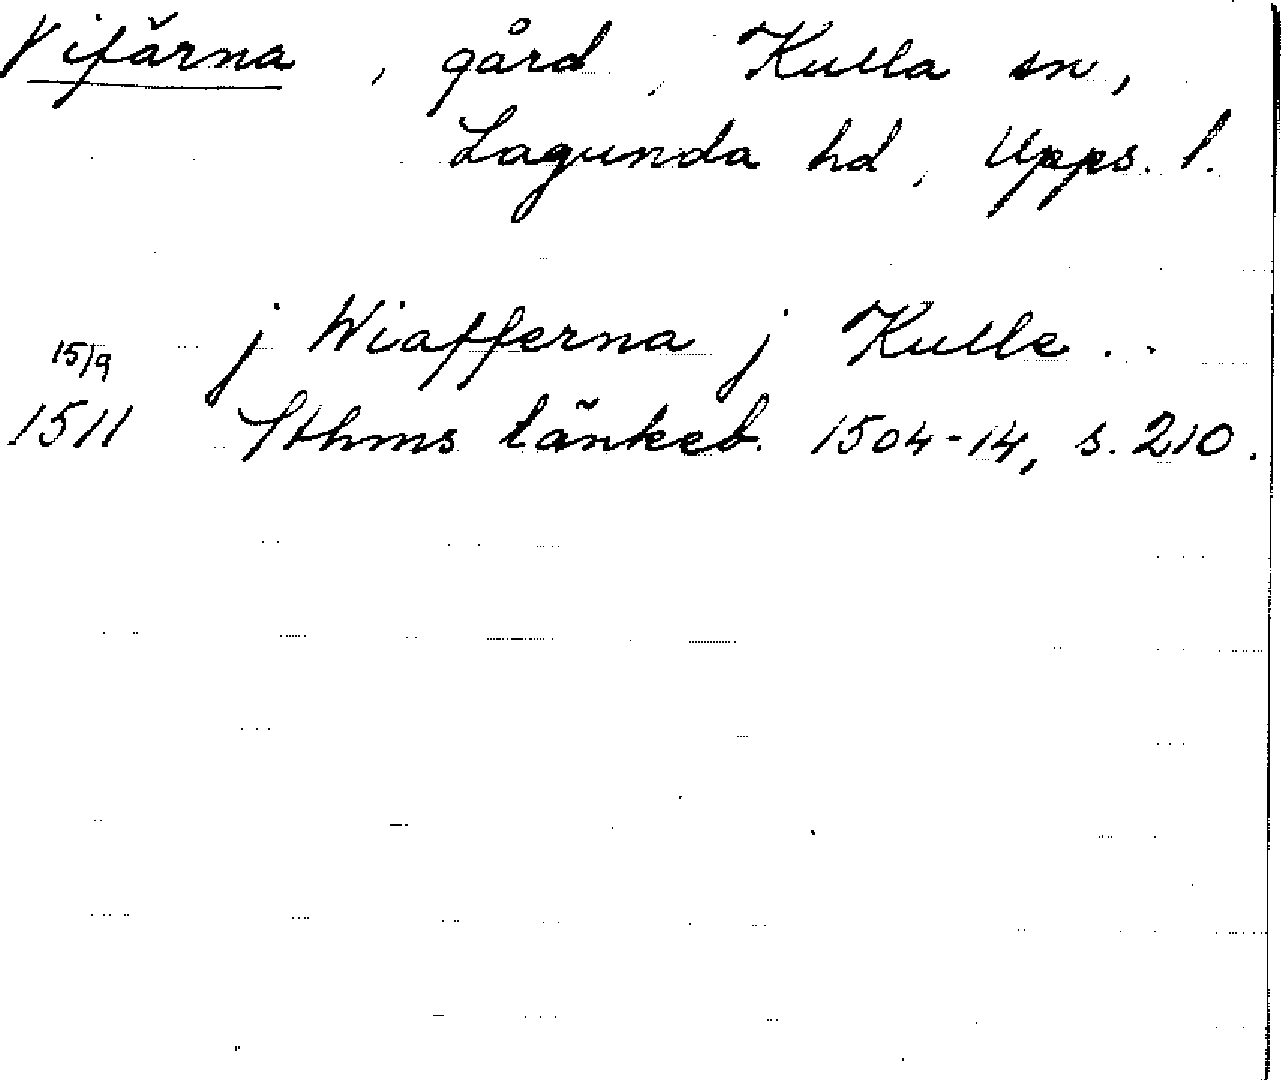 Vifärna, gård, Kulla sn,
Lagunda hd, Upps. l.
j Wiafferna j Kulle..
15/9
1511 Sthms tänkeb. 1504-14, s. 210.